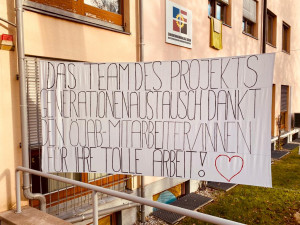 DAS TEAM DES PROJEKTS
GENERATIONENAUSTAUSCH DANKT
DEN ÖJAB-MITARBEITER/INNEN
FÜR IHRE TOLLE ARBEIT!